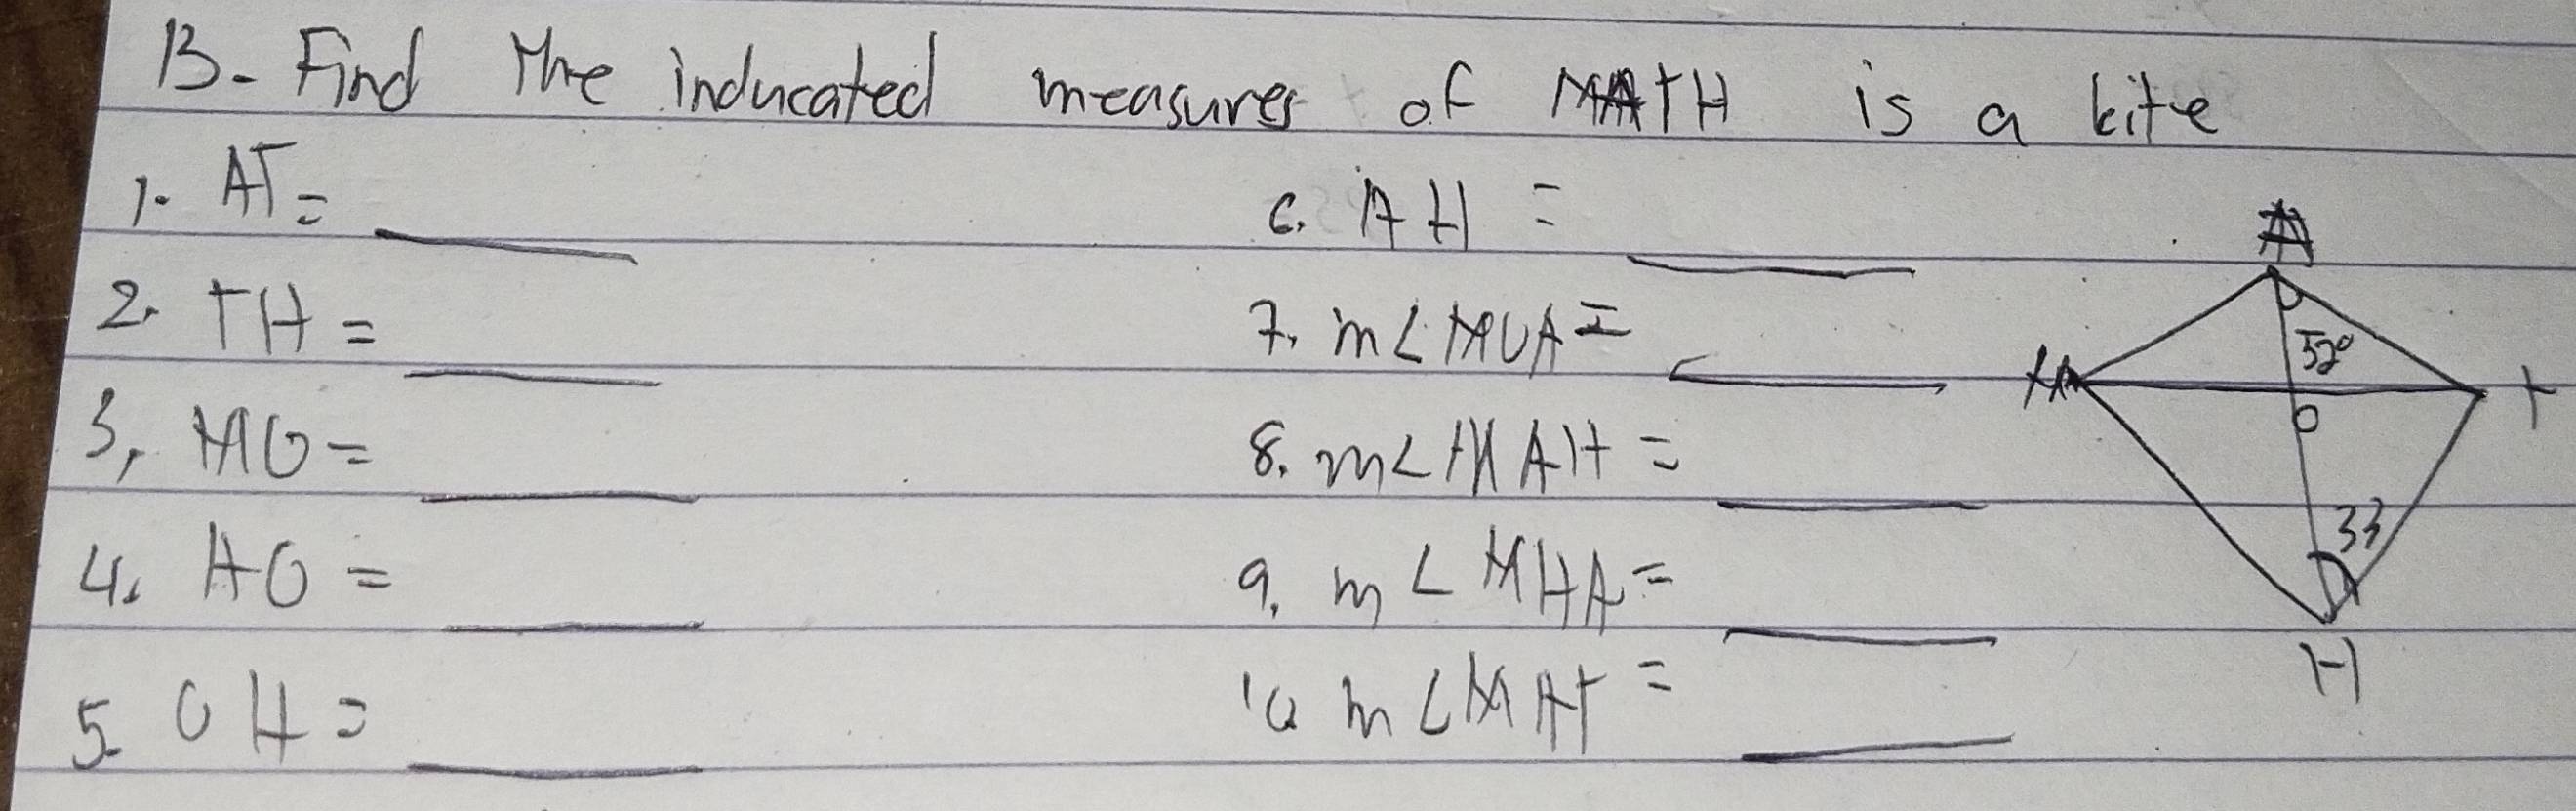 B- Find the inducated measures of MATH is a kite
1. AT= 
2. TH = 
3, MO = 
4. AO = 
5. OH = 
6. AH = 
7. m∠MOA = 
8. m∠MAH = 
9. m∠MHA = 
10 m∠MAT = 
A
52°
M
T
O
33
H